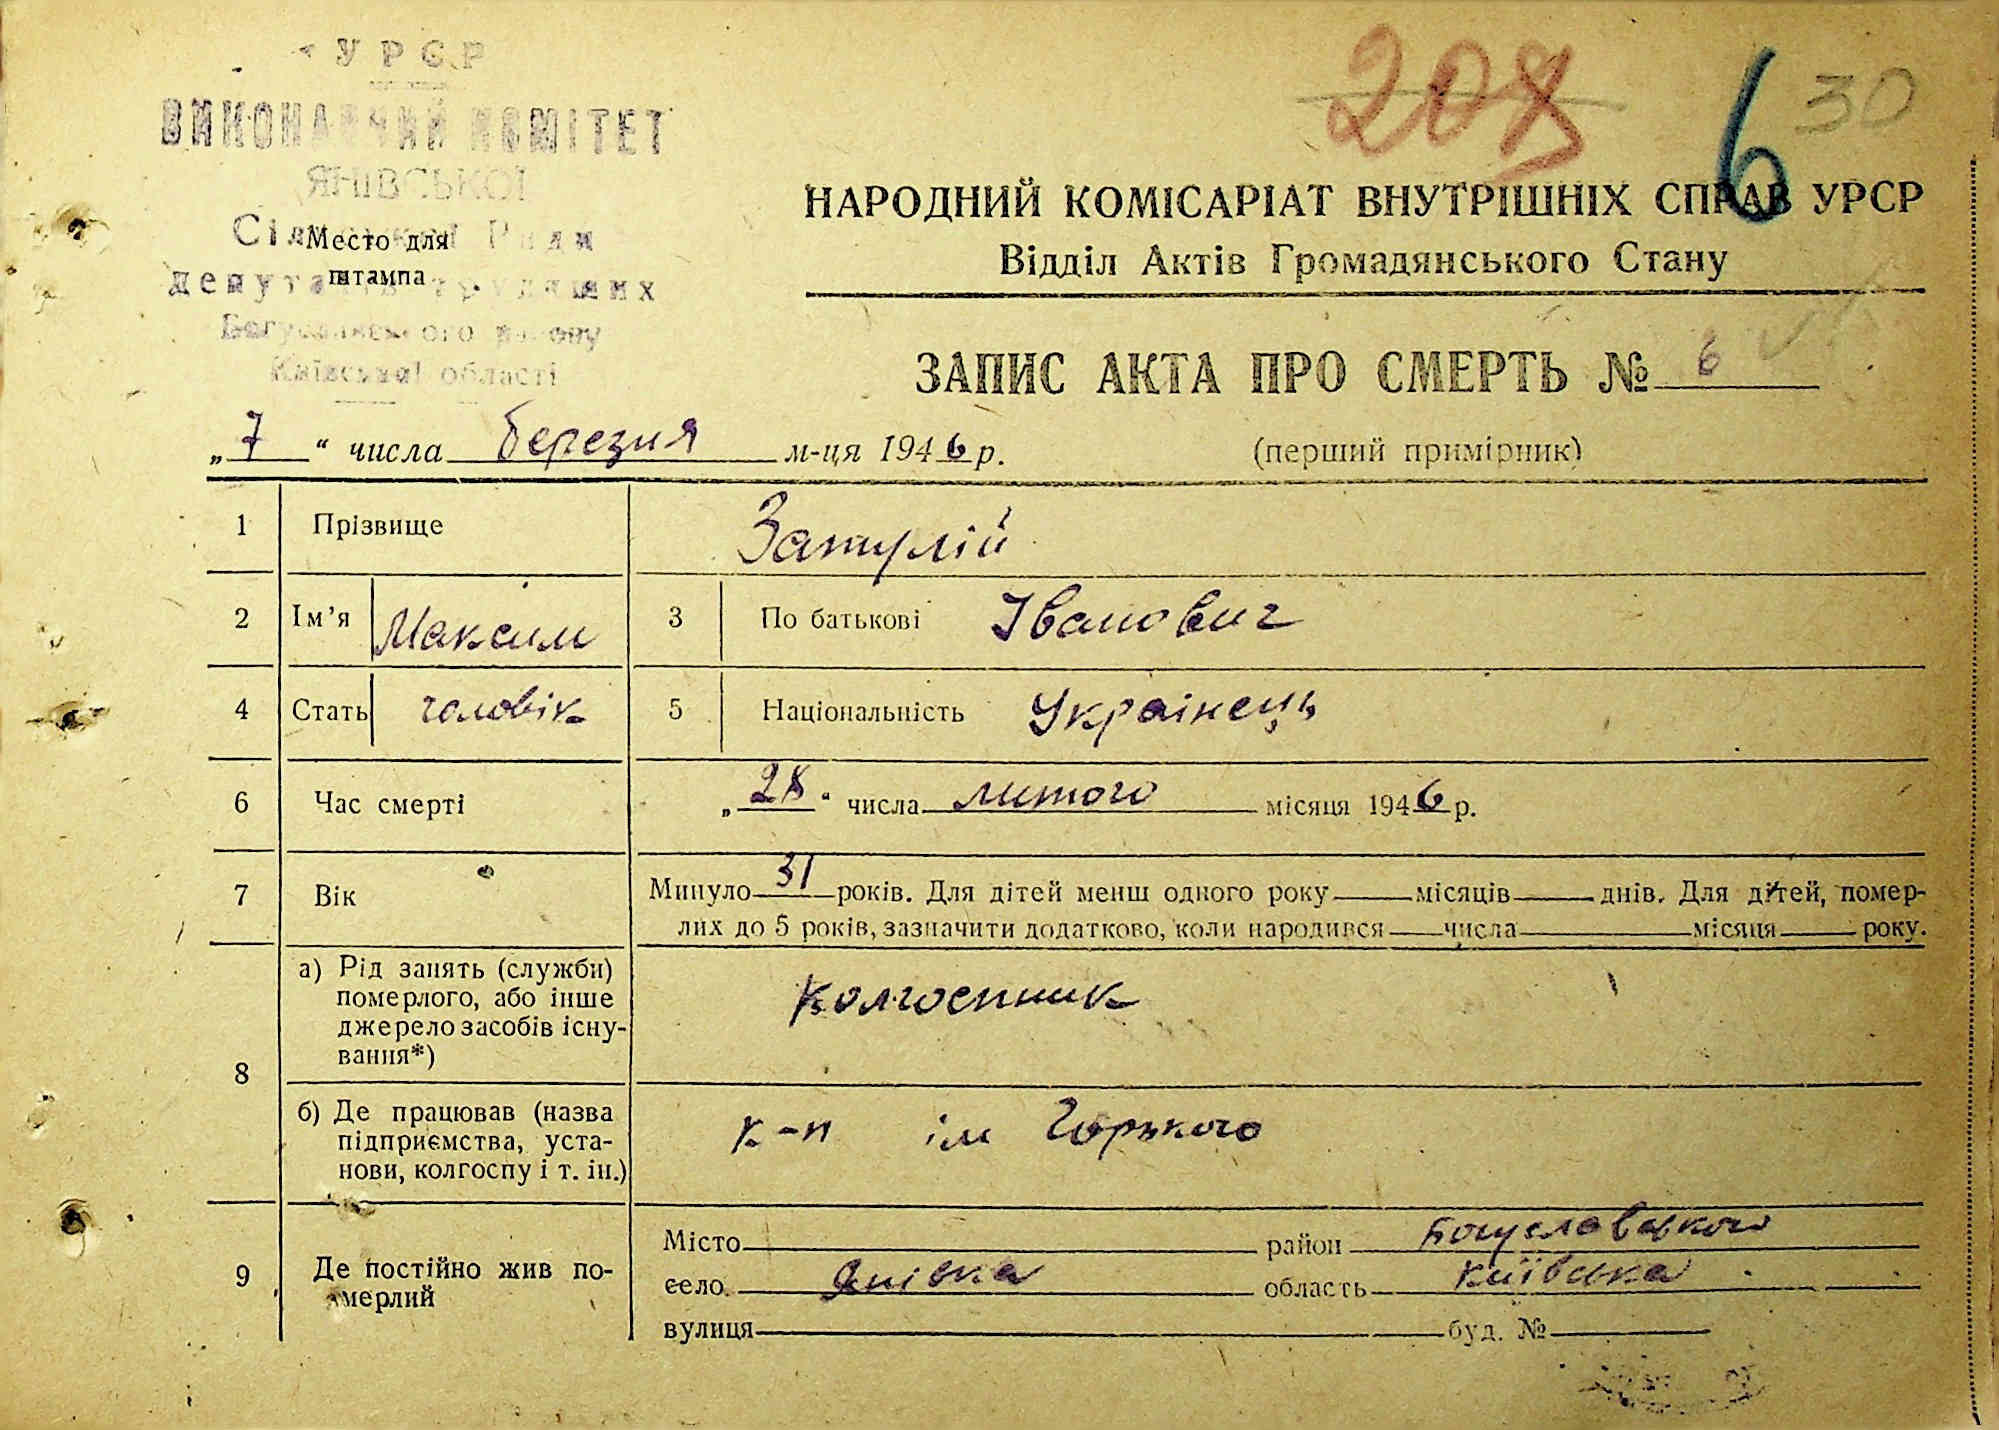 УРСР
ВИКОНАВЧИЙ КОМІТЕТ
ЯНІВСЬКОЇ
Сільської Ради
депутатів трудящих
Богуславського району
Київської області
Место для
штампа
208
6 30
НАРОДНИЙ КОМІСАРІАТ ВНУТРІШНІХ СПРАВ УРСР
Відділ Актів Громадянського Стану
ЗАПИС АКТА ПРО СМЕРТЬ № 6
„7“ числа березня м-ця 1946 р.
(перший примірник)
1 Прізвище Затулій
2 Ім’я Максим 3 По батькові Іванович
4 Стать чоловік 5 Національність Українець
6 Час смерті „28“ числа лютого місяця 1946 р.
7 Вік Минуло 31 років. Для дітей менш одного року місяців днів. Для дітей, помер-
лих до 5 років, зазначити додатково, коли народився числа місяця року.
8
а) Рід занять (служби)
померлого, або інше
джерело засобів існу-
вання*)
колгоспник
б) Де працював (назва
підприємства, уста-
нови, колгоспу і т. ін.)
к-п ім Горького
9 Де постійно жив по-
мерлий
Місто район Богуславського
село Янівка область Київська
вулиця буд. №